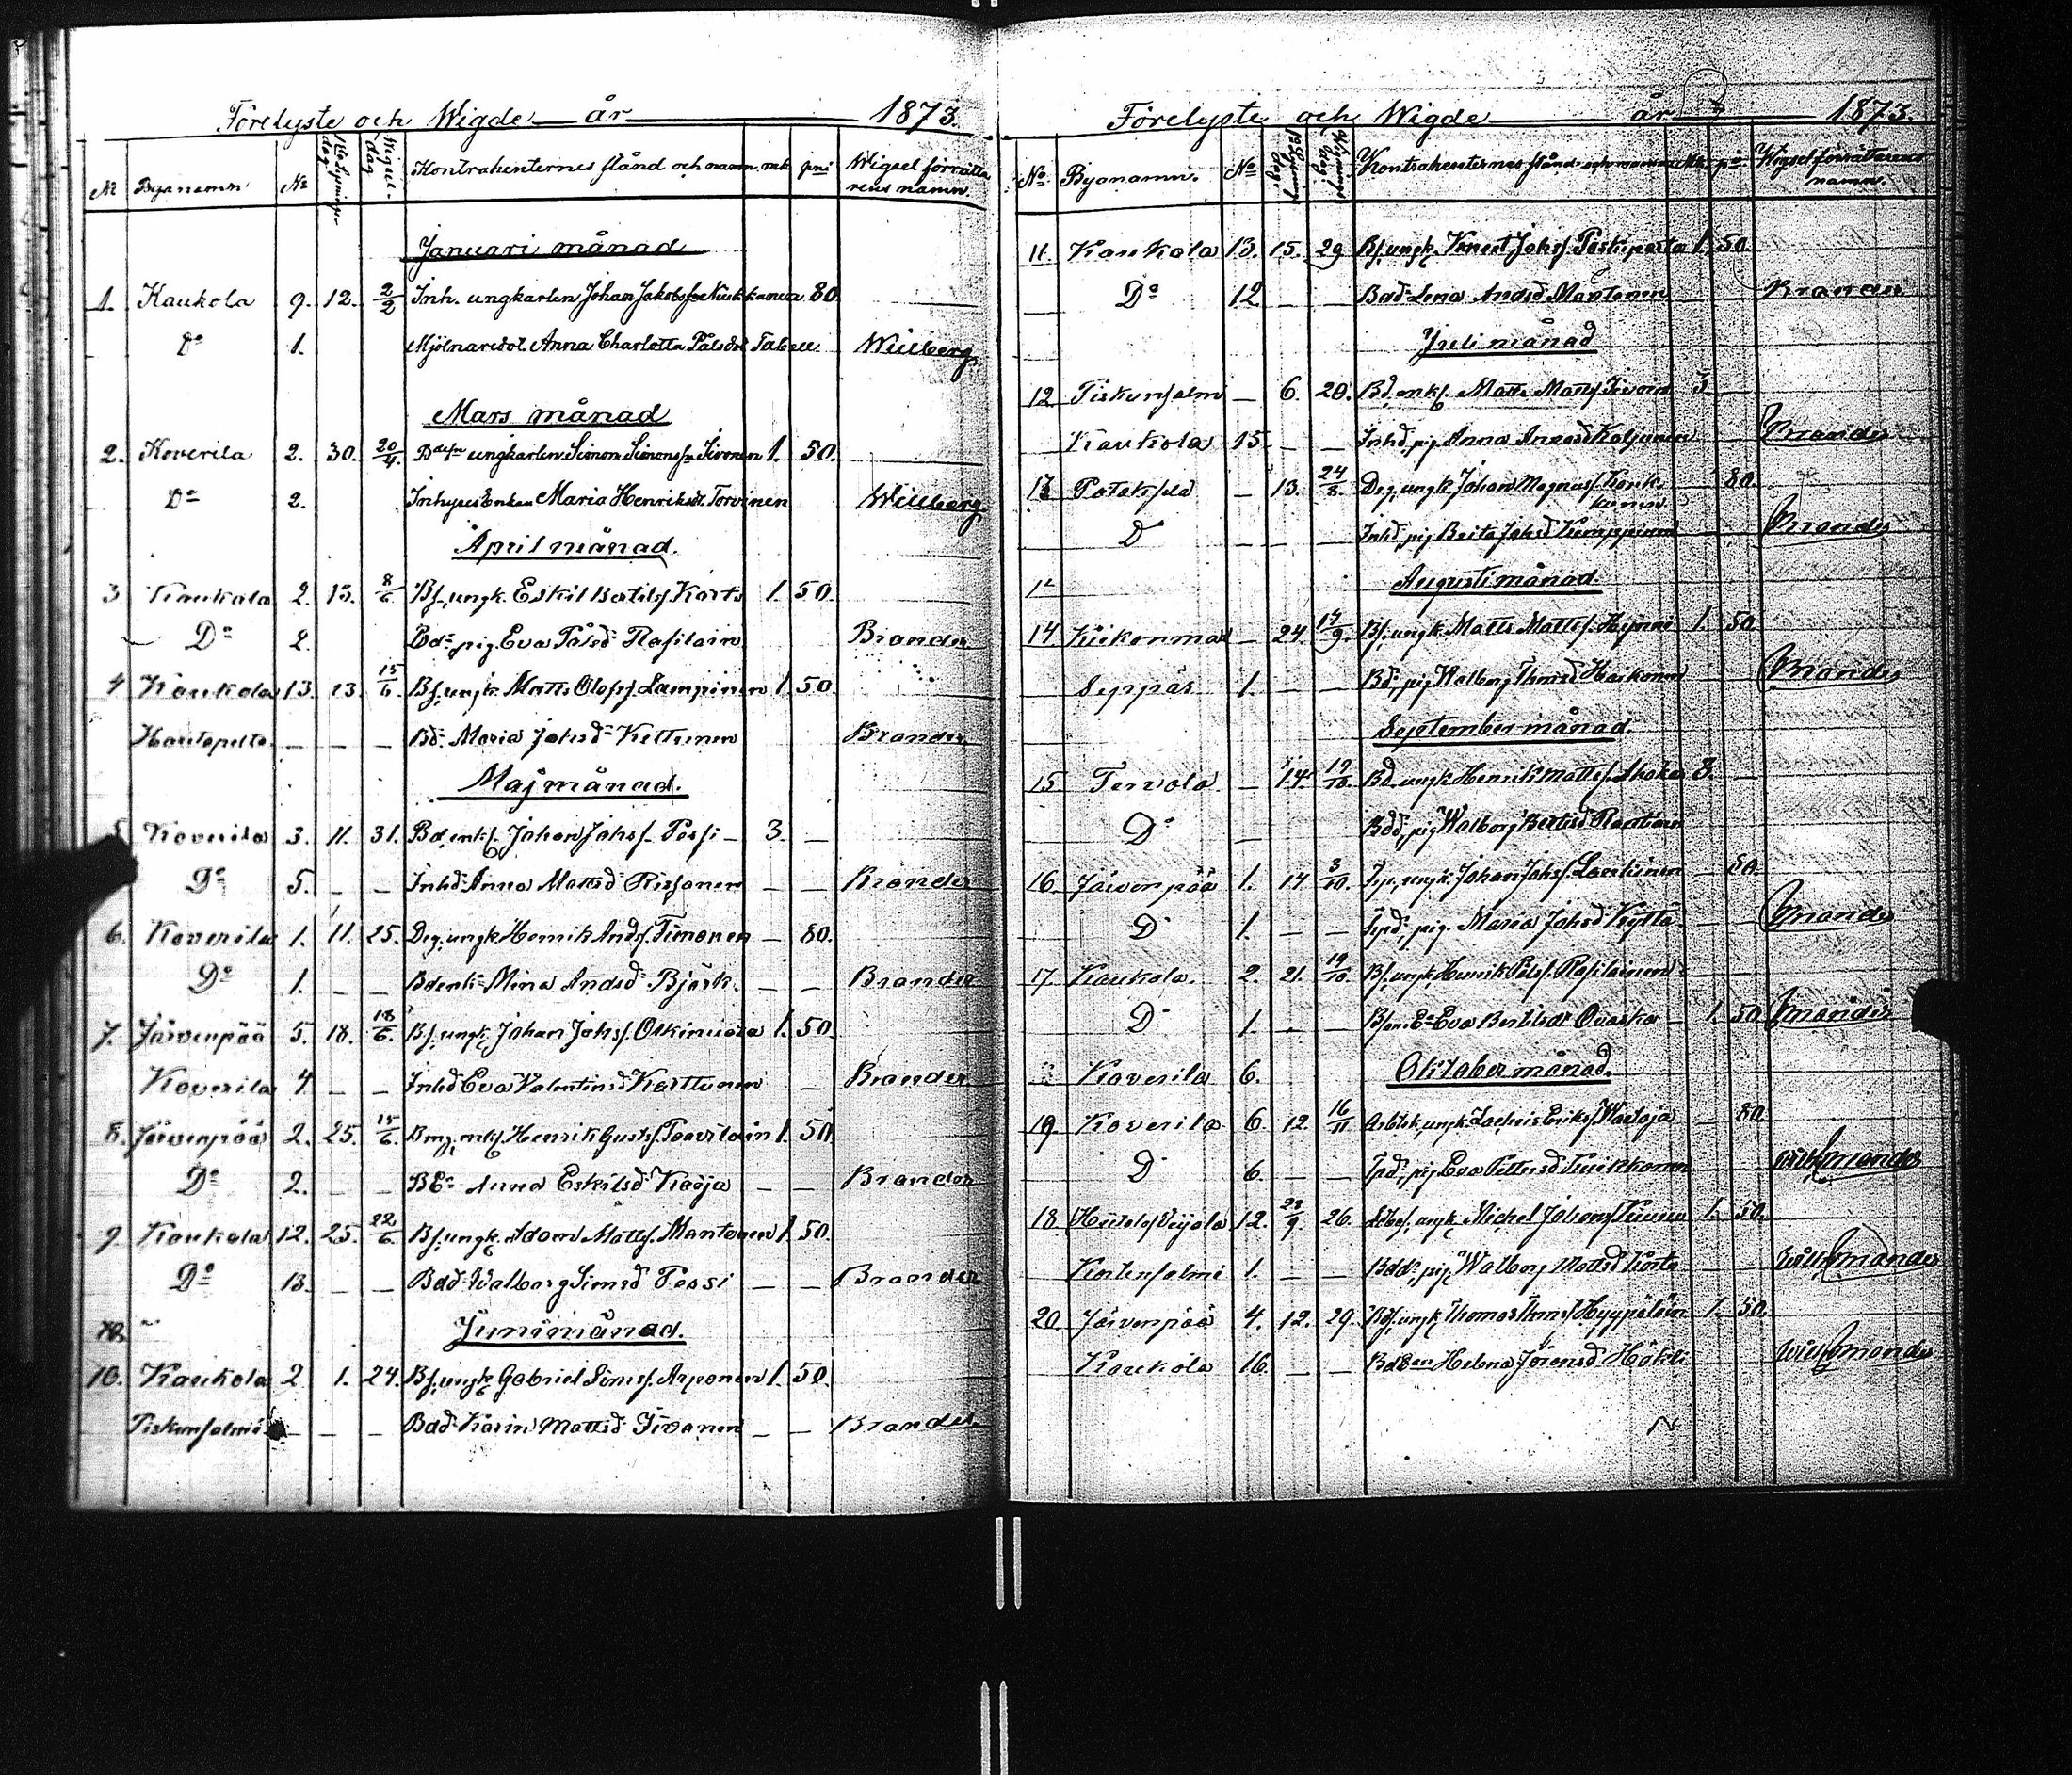 Förelyste och Wigde år 1873.
No Byanamn No Lysnings dag Wigsel-dag Kontrahenternes stånd och namn mk pni Wigsel förrätta rens namn
Januari månad
1. Kaukola 9. 12. 2/2 Inh. ungkarlen Johan Jakobsson 80
Do 1. Mjölnaredot. Anna Charlotta Pålsdot Tabell Willberg
Mars månad
2. Koverila 2. 30. 20/4. ungkarlen Simon Simonss Sivonen 1. 50.
Do 2. Inhyses Enkan Maria Henriksd. Torvinen Willberg.
April månad.
3 Kaukola 2. 15. 8/6 Bs. ungk. Eskil Bertils. Karts 1. 50.
Do 2. Bd. pig. Eva Pålsd. Rasilain Brander
4 Kaukola 13. 13. 15/6. Bs. ungk. Matts Olofs. Lampinen 1 50.
Hautapelto. — — — Bd. Maria Johsd. Kettunen Brander
Maj månad.
5 Koverila 3. 11. 31. Bd. enkl. Johan Johss. Possi — 3. —
Do 5. — — Inhd. Anna Mattsd. Rissanen — — Brander
6. Koverila 1. 11. 25. Drg. ungk. Henrik Ands. Timonen — 80.
Do 1. — — Bdenk. Mina Andsd. Björk. — — Brander
7. Järvenpää 5. 18. 18/6. Bs. ungk. Johan Johss. Oskiniora 1. 50.
Koverila 4. — — Inhd Eva Valentinsd Karttunen — Brander
8. Järvenpää 2. 25. 15/6. enkl. Henrik Gusts. Toovilain 1. 50.
Do 2. — — BE. Anna Eskilsd Karja — — Brander
9. Kaukola 12. 25. 22/6 Bs. ungk. Adam Matts. Mantonen 1 50.
Do 13. — — Bdd. Walborg Simsd Possi — — Brander
10.
Juni månad.
10. Kaukola 2 1. 24. Bs. ungk. Gabriel Sims. Arponen 1. 50.
Piskunsalmi — — — Bdd. Karin Mattsd. Sivonen — — Brander
Förelyste och Wigde år 1873.
No Byanamn. No Lysnings dag Wignings dag Kontrahenternes stånd och namn Mk pi Wigsel förrättarens namn.
11. Kaukola 13. 15. 29 Bs. ungk. Johs. 1. 50.
Do 12 Bdd. Lena Andsd Mantonen Brander
Juli månad
12 Piskunsalmi — 6. 20. Bd. enkl. Matts Matts. Sivonen 3. —
Kaukola 15. — — Inhd. pig. Anna Koljonen Brander
13 Potoksela — 13. 24/8. Drg. ungk. Johan Magnus. 80.
D — — — Inhd. pig Beata Johsd Kemppinen Brander
14 Augusti månad.
14. Kiekonmaa — 24. 14/9. Bs. ungk. Matts Matts. 1. 50
Seppäs 1. — — Bd. pig Walborg Thmsd Haikonen Brander
September månad.
15 Tervola — 14 19/10. Bd. ungk. Henrik Matts. 3. —
D — Bdd. pig Walborg Bertilsd Rantonen
16. Järvenpää 1. 14. 3/10. ungk. Johan Johs. Laukinen — 80.
D 1. — — pig. Maria Johsd Kyttä — — Brander
17. Kaukola. 2. 21. 19/10 Bs. ungk. Henrik Påls. Rasilainen
D 1 — — Eva Bertilsd Ovaska — 1. 50 Brander
Koverila 6. Oktober månad.
19. Koverila 6. 12. 16/11 ungk. Zachris Eriks. 80.
D 6. — — pig Eva Pettersd Kuikkonen Brander
18. Hiitola Veijala 12. 28/9. 26. ungk. Michel Johans. 1. 50.
Kortensalmi 1. — — Bdd. pig Walborg Mattsd Brander
20. Järvenpää 4. 12. 29. ungk. Thomas Thoms. Hyypiäläin 1. 50.
Kaukola 16. — — Helena Jöransd. Häkli Brander